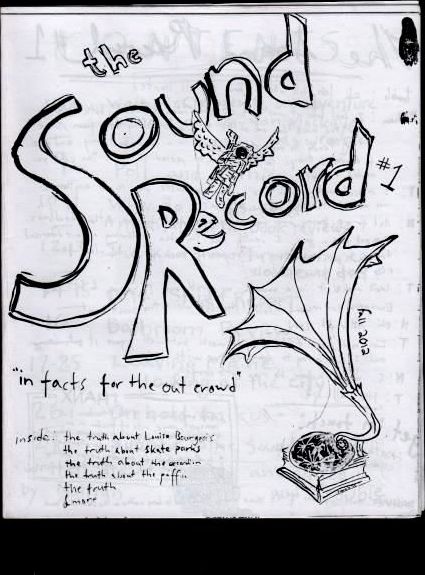 the
Sound
Record
#1
fall 2012
"in facts for the out crowd"
inside: the truth about Louise Bourgeois
the truth about skate parks
the truth about the accordion
the truth about the puffin
the truth
& more